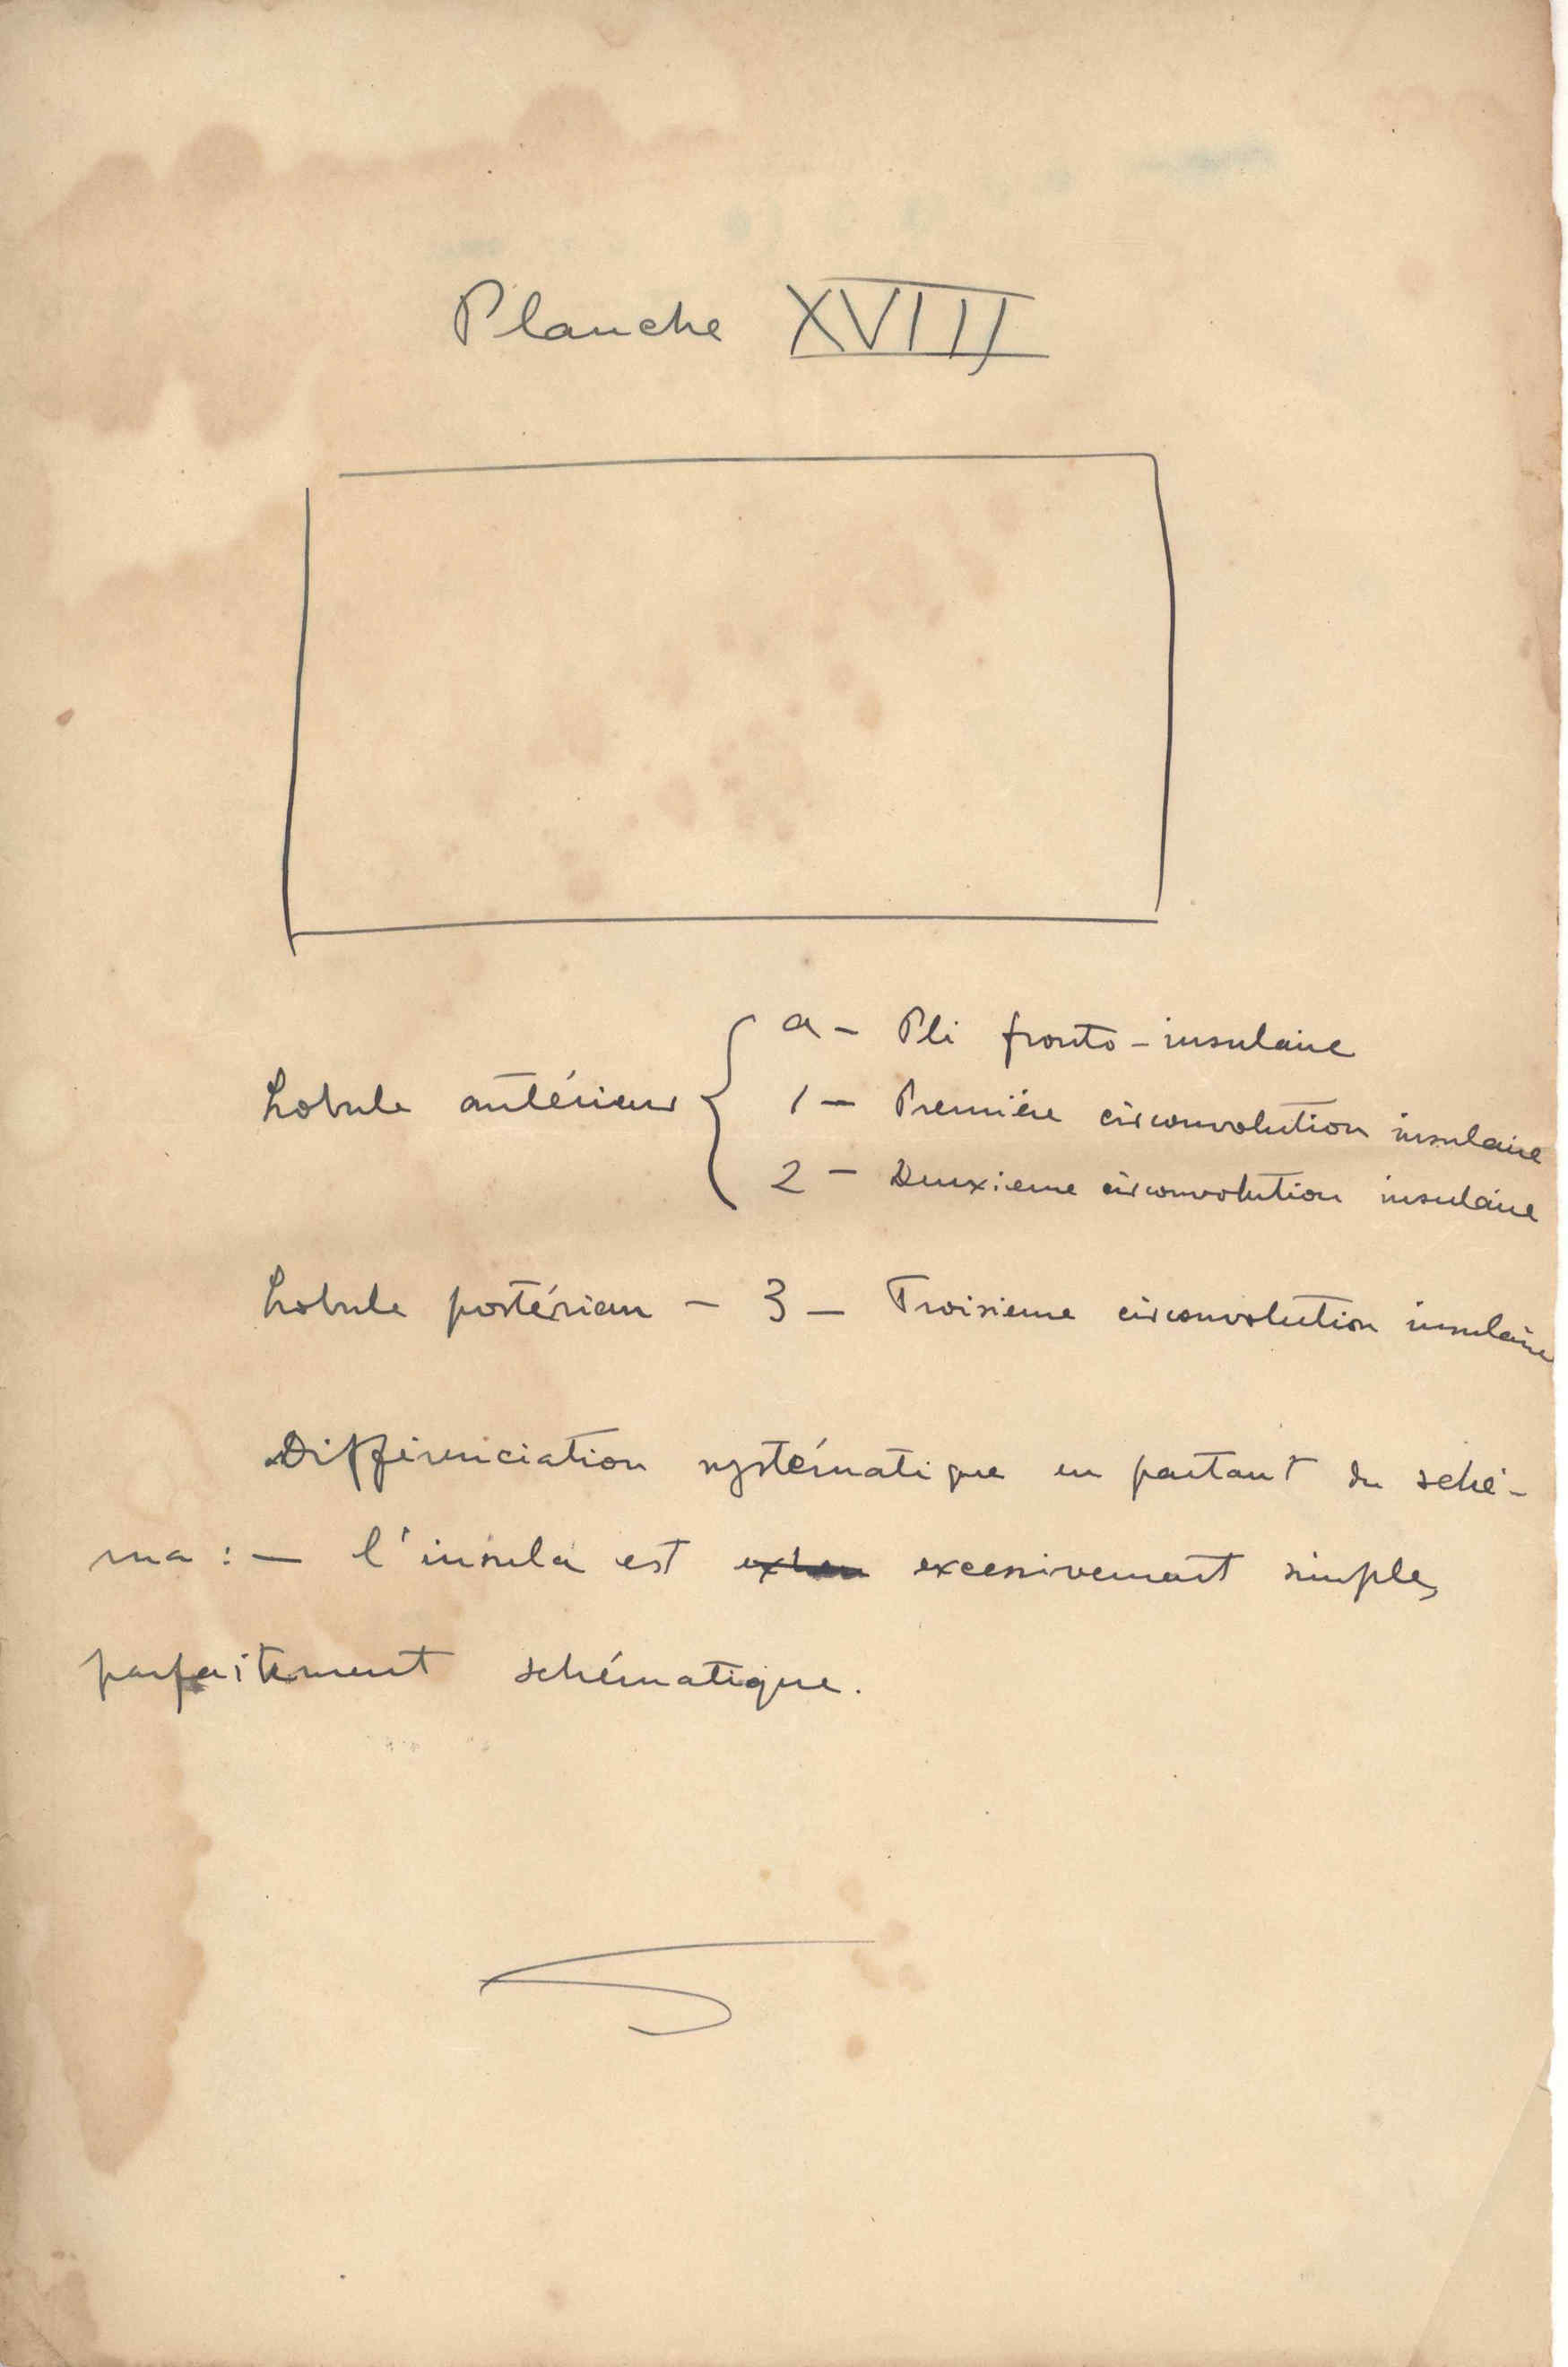 Planche XVIII
a - Pli fronto-insulaire
Lobule antérieur { 1 - Première circonvolution insulaire
2 - Deuxieme circonvolution insulaire
Lobule postérieur - 3 - Troisieme circonvolution insulaire
Différenciation systématique en partant du sché-
ma : - l'insula est excessivement simple,
parfaitement schématique.